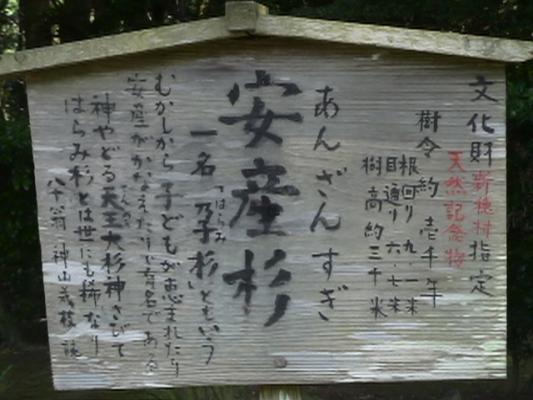 文化財 新穂村指定
天然記念物
樹令約壱千年
根回り九・一米
目通り六・七米
樹高約三千米
あんざんすぎ
安産杉
一名「はらみ孕杉」ともいう
むかしから子どもが恵まれたり
安産がかなえたりで有名である
神やどる天王大杉神さびて
はらみ杉とは世にも稀なり
八十翁 神山義枝 詠